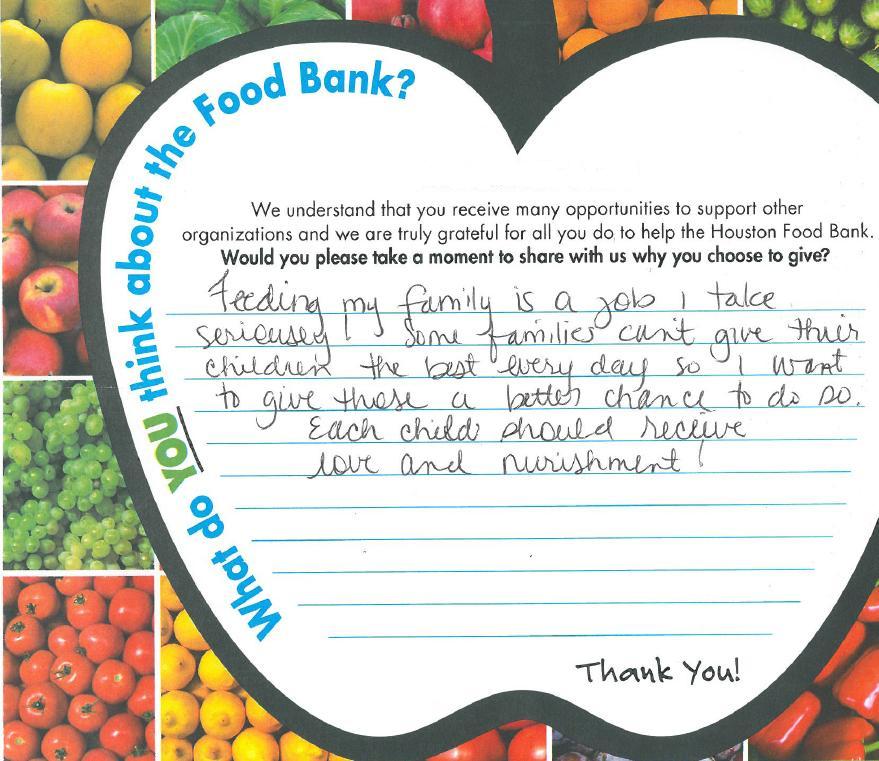 What do YOU think about the Food Bank?
We understand that you receive many opportunities to support other
organizations and we are truly grateful for all you do to help the Houston Food Bank.
Would you please take a moment to share with us why you choose to give?
Feeding my family is a job I take
seriousey! Some families can't give their
children the best every day so I want
to give those a better chance to do so.
Each child should receive
love and nurishment!
Thank You!